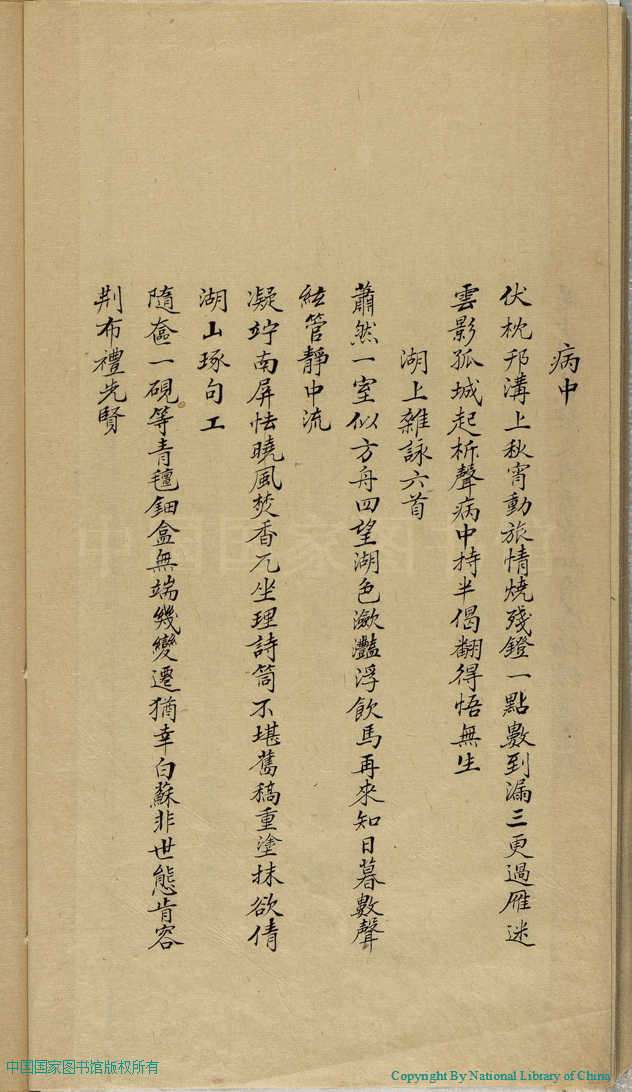 病中
伏枕邗溝上秋宵動旅情燒殘鐙一點數到漏三更過雁迷
雲影孤城起柝聲病中持半偈翻得悟無生
湖上雜詠六首
蕭然一室似方舟四望湖色瀲灩浮飲馬再來知日暮數聲
絃管靜中流
凝竚南屏怯曉風焚香兀坐理詩筒不堪舊稿重塗抹欲倩
湖山琢句工
隨奩一硯等青氊鈿盒無端幾變遷猶幸白蘇非世態肯容
荆布禮先賢
中国国家图书馆版权所有
Copyright By National Library of China